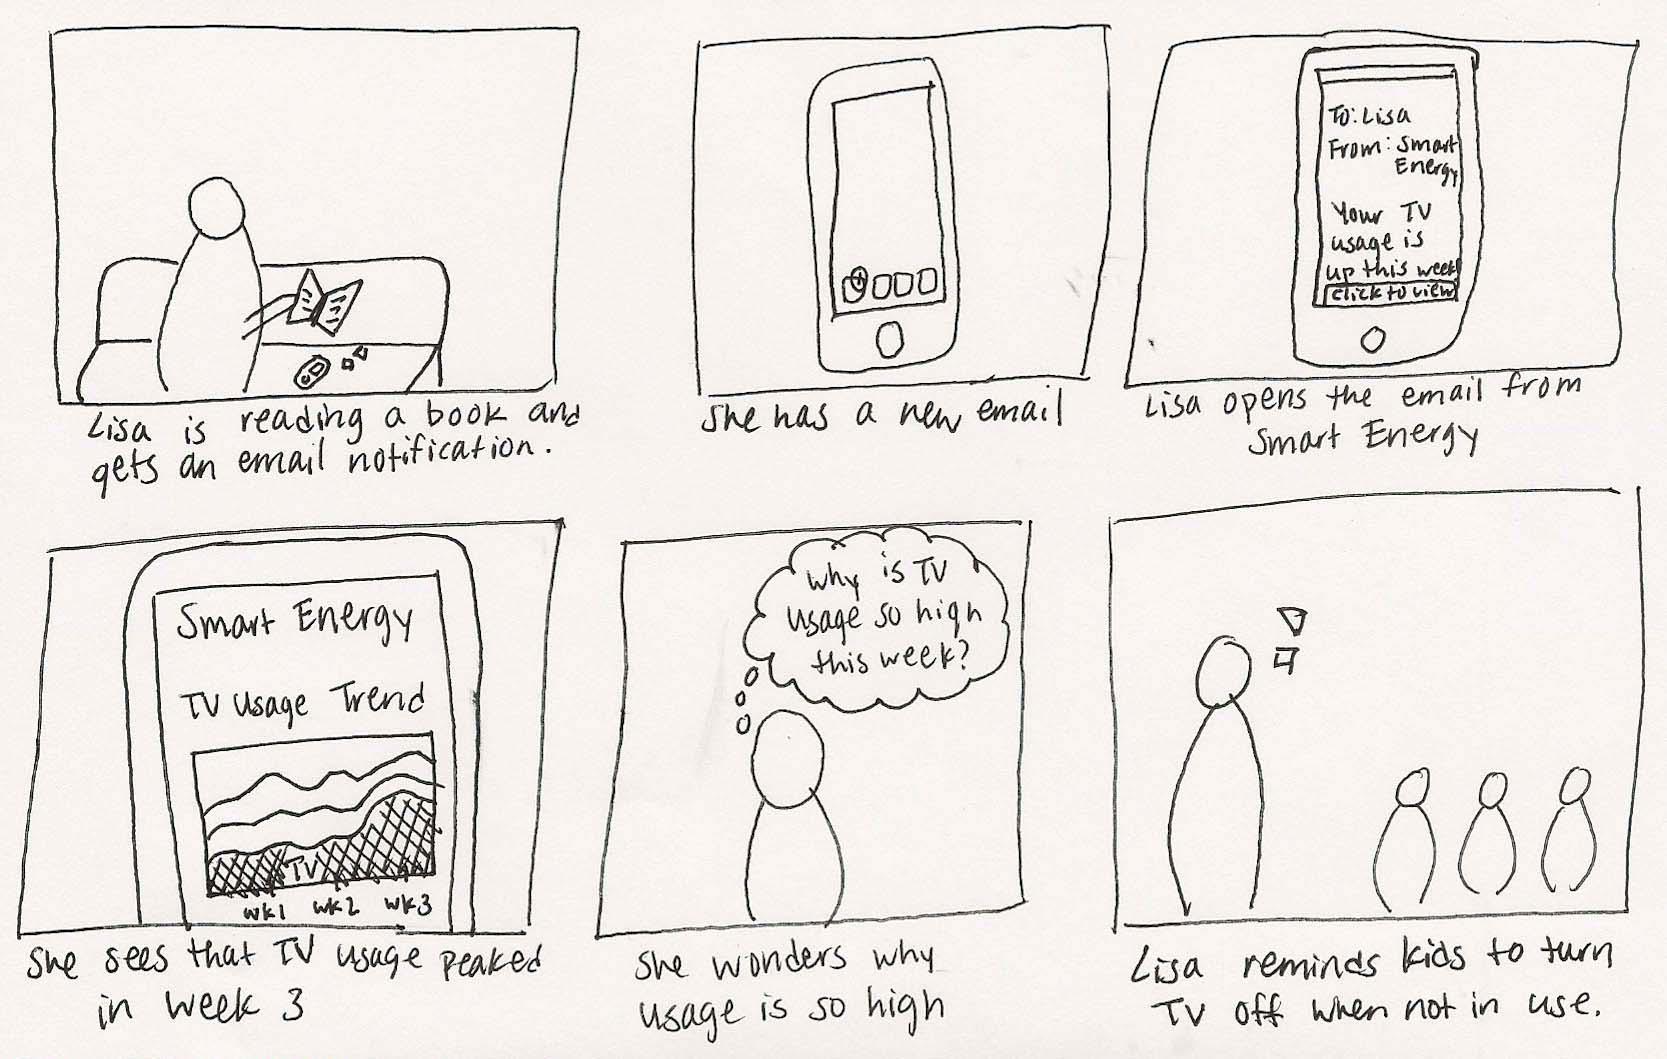 Lisa is reading a book and
gets an email notification.
She has a new email
To: Lisa
From: Smart
Energy
Your TV
usage is
up this week
click to view
Lisa opens the email from
Smart Energy
Smart Energy
TV Usage Trend
TV
WK1 WK2 WK3
She sees that TV usage peaked
in week 3
Why is TV
usage so high
this week?
She wonders why
usage is so high
Lisa reminds kids to turn
TV off when not in use.